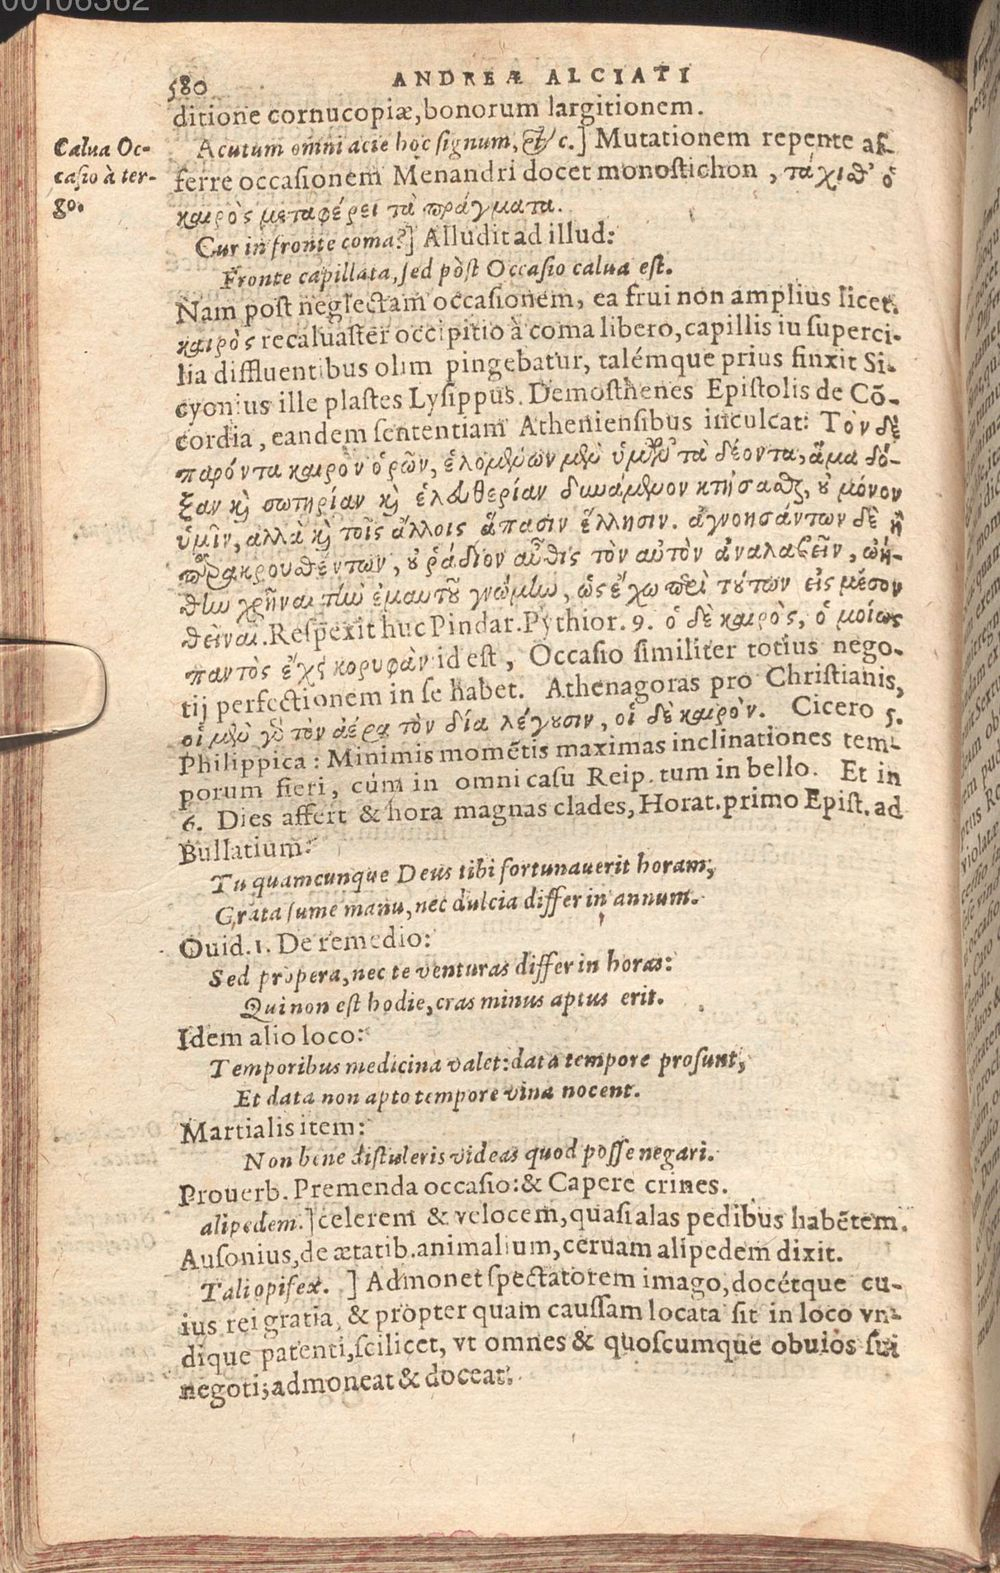 00106362
580 ANDREÆ ALCIATI
ditione cornucopiæ, bonorum largitionem.
Calua Oc-
casio à ter-
go.
Acutum omni acie hoc signum, &c.] Mutationem repente af-
ferre occasionem Menandri docet monostichon, τάχισθ' ὁ
καιρὸς μεταφέρει τὰ πράγματα.
Cur in fronte coma?] Alludit ad illud:
Fronte capillata, sed pòst Occasio calua est.
Nam post neglectam occasionem, ea frui non amplius licet.
καιρὸς recaluaster occipitio à coma libero, capillis in superci-
lia diffluentibus olim pingebatur, talémque prius finxit Si-
cyonius ille plastes Lysippus. Demosthenes Epistolis de Cō-
cordia, eandem sententiam Atheniensibus inculcat: Τὸν δὲ
παρόντα καιρὸν ὁρῶν, ἑλομένων μὲν ὑμῶν τὰ δέοντα, ἅμα δό-
ξαν καὶ σωτηρίαν καὶ ἐλευθερίαν δυνάμενον κτήσασθαι, οὐ μόνον
ὑμῖν, ἀλλὰ καὶ τοῖς ἄλλοις ἅπασιν ἕλλησιν. ἀγνοησάντων δὲ ἢ
παρακρουσθέντων, οὐ ῥάδιον αὖθις τὸν αὐτὸν ἀναλαβεῖν, ᾠή-
θην χρῆναι τὴν ἐμαυτοῦ γνώμην, ὡς ἔχω περὶ τούτων εἰς μέσον
θεῖναι. Respexit huc Pindar. Pythior. 9. ὁ δὲ καιρὸς, ὁμοίως
παντὸς ἔχει κορυφὰν id est, Occasio similiter totius nego-
tij perfectionem in se habet. Athenagoras pro Christianis,
οἱ μὲν γὸ τὸν ἀέρα τὸν δία λέγουσιν, οἱ δὲ καιρόν. Cicero 5.
Philippica: Minimis momētis maximas inclinationes tem-
porum fieri, cùm in omni casu Reip. tum in bello. Et in
6. Dies affert & hora magnas clades, Horat. primo Epist. ad
Bullatium:
Tu quamcunque Deus tibi fortunauerit horam,
Grata sume manu, nec dulcia differ in annum.
Ouid. 1. De remedio:
Sed propera, nec te venturas differ in horas:
Qui non est hodie, cras minus aptus erit.
Idem alio loco:
Temporibus medicina valet: data tempore prosunt,
Et data non apto tempore vina nocent.
Martialis item:
Non bene distuleris videas quod posse negari.
Prouerb. Premenda occasio: & Capere crines.
alipedem.] celerem & velocem, quasi alas pedibus habētem.
Ausonius, de ætatib. animalium, ceruam alipedem dixit.
Tali opifex. ] Admonet spectatorem imago, docétque cu-
ius rei gratia, & propter quam caussam locata sit in loco vn-
dique patenti, scilicet, vt omnes & quoscumque obuios sui
negotij admoneat & doceat.